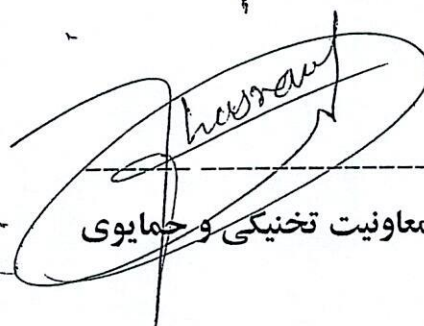 معاونیت تخنیکی و حمایوی